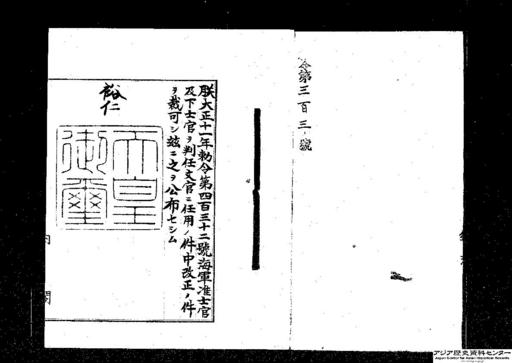 令第三百三號
朕大正十一年勅令第四百三十二號海軍准士官
及下士官ヲ判任文官ニ任用ノ件中改正ノ件
ヲ裁可シ玆ニ之ヲ公布セシム
裕仁
天皇
御璽
内
閣
アジア歴史資料センター
Japan Center for Asian Historical Records